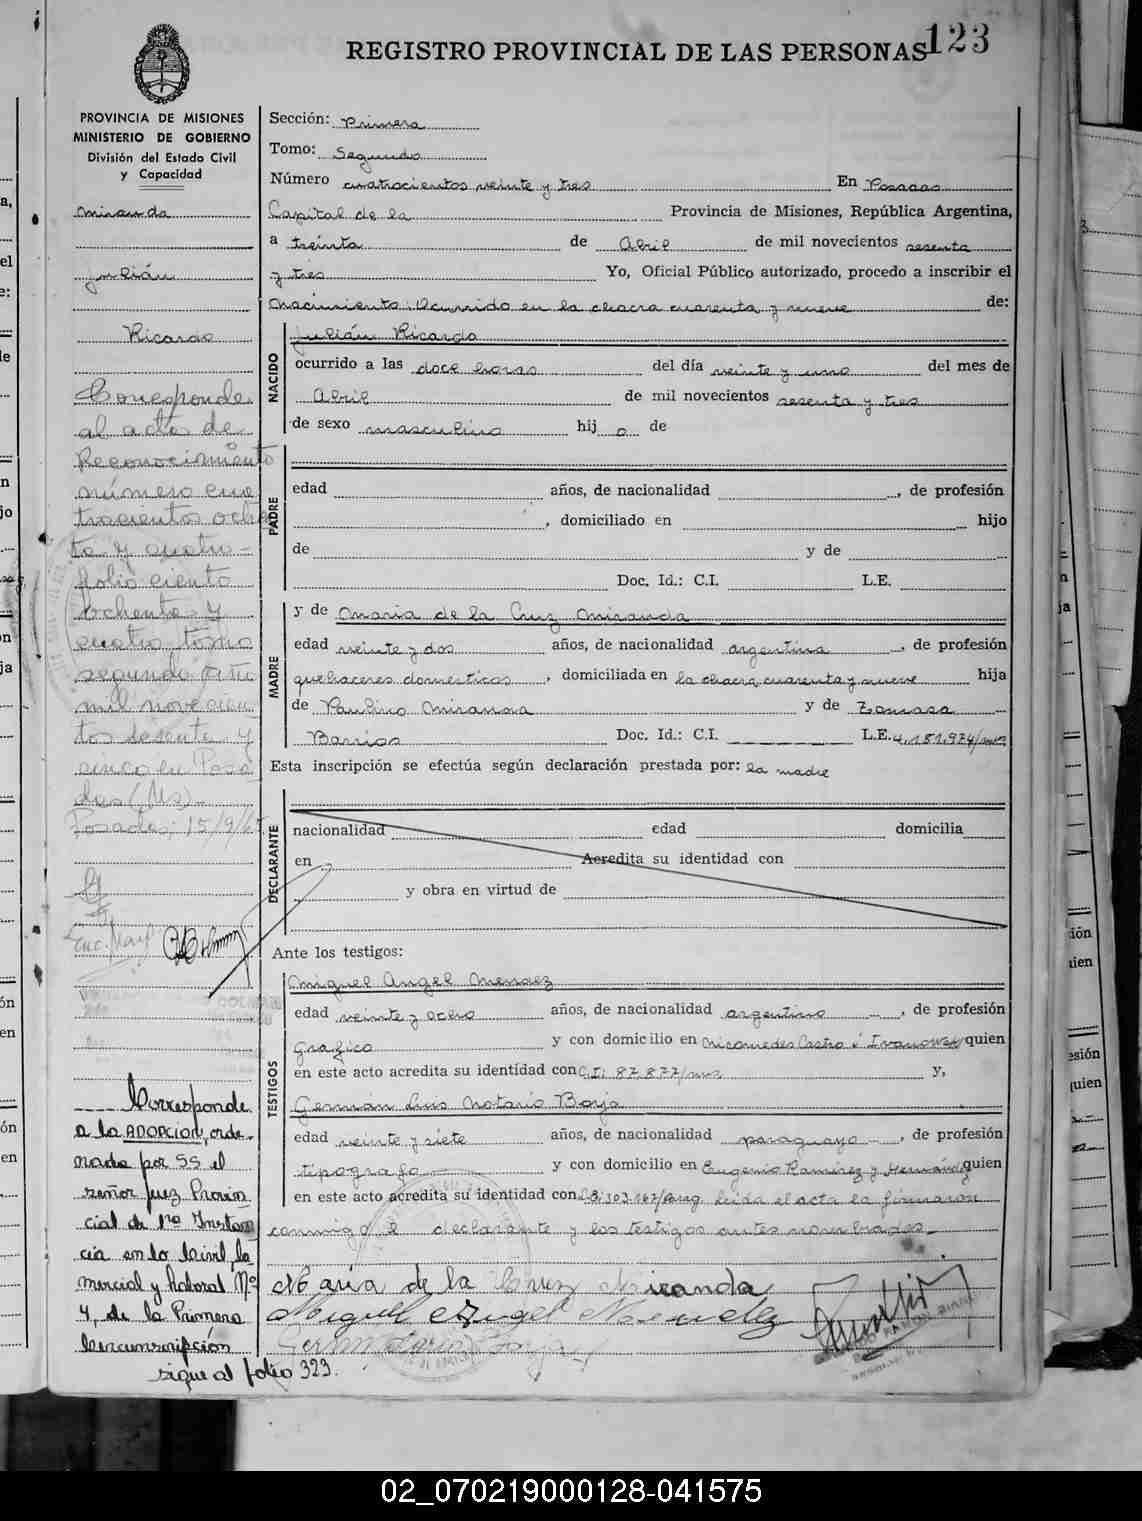 123
REGISTRO PROVINCIAL DE LAS PERSONAS
PROVINCIA DE MISIONES
MINISTERIO DE GOBIERNO
División del Estado Civil
y Capacidad
Miranda
Julián
Ricardo
Corresponde
al acta de
Reconocimiento
número cua
trocientos ochen
ta y cuatro-
folio ciento
ochenta y
cuatro tomo
segundo año
mil novecien
tos sesenta y
cinco en Posa
das (Ms)-
Posadas, 15/9/65
Corresponde
a la ADOPCION, orde-
nada por SS el
señor Juez Provin
cial de 1ra Instan
cia en lo Civil, Co
mercial y Laboral Nº
4, de la Primera
Circunscripción
sigue al folio 323.
Sección: Primera
Tomo: Segundo
Número cuatrocientos veinte y tres En Posadas
Capital de la Provincia de Misiones, República Argentina,
a treinta de Abril de mil novecientos sesenta
y tres Yo, Oficial Público autorizado, procedo a inscribir el
Nacimiento. Ocurrido en la chacra cuarenta y nueve de:
NACIDO
Julián Ricardo
ocurrido a las doce horas del día veinte y uno del mes de
Abril de mil novecientos sesenta y tres
de sexo masculino hijo de
PADRE
edad años, de nacionalidad , de profesión
, domiciliado en hijo
de y de
Doc. Id.: C.I. L.E.
MADRE
y de Maria de la Cruz Miranda
edad veinte y dos años, de nacionalidad argentina , de profesión
quehaceres domésticos , domiciliada en la chacra cuarenta y nueve hija
de Paulino Miranda y de Tomasa
Barrios Doc. Id.: C.I. L.E. 4.151.974/mns
Esta inscripción se efectúa según declaración prestada por: la madre
DECLARANTE
nacionalidad edad domicilia
en Acredita su identidad con
y obra en virtud de
Ante los testigos:
TESTIGOS
Miguel Angel Mendez
edad veinte y ocho años, de nacionalidad argentino , de profesión
Gráfico y con domicilio en Nicomedes Castro é Ivanowski quien
en este acto acredita su identidad con C.I: 87.877/mns y,
German Luis Notario Borja
edad veinte y siete años, de nacionalidad paraguayo , de profesión
tipografo y con domicilio en Eugenio Ramirez y Hernández quien
en este acto acredita su identidad con 303.167/Parag. leida el acta la firmaron
conmigo el declarante y los testigos antes nombrados-
Maria de la Cruz Miranda
Miguel Angel Mendez
02_070219000128-041575